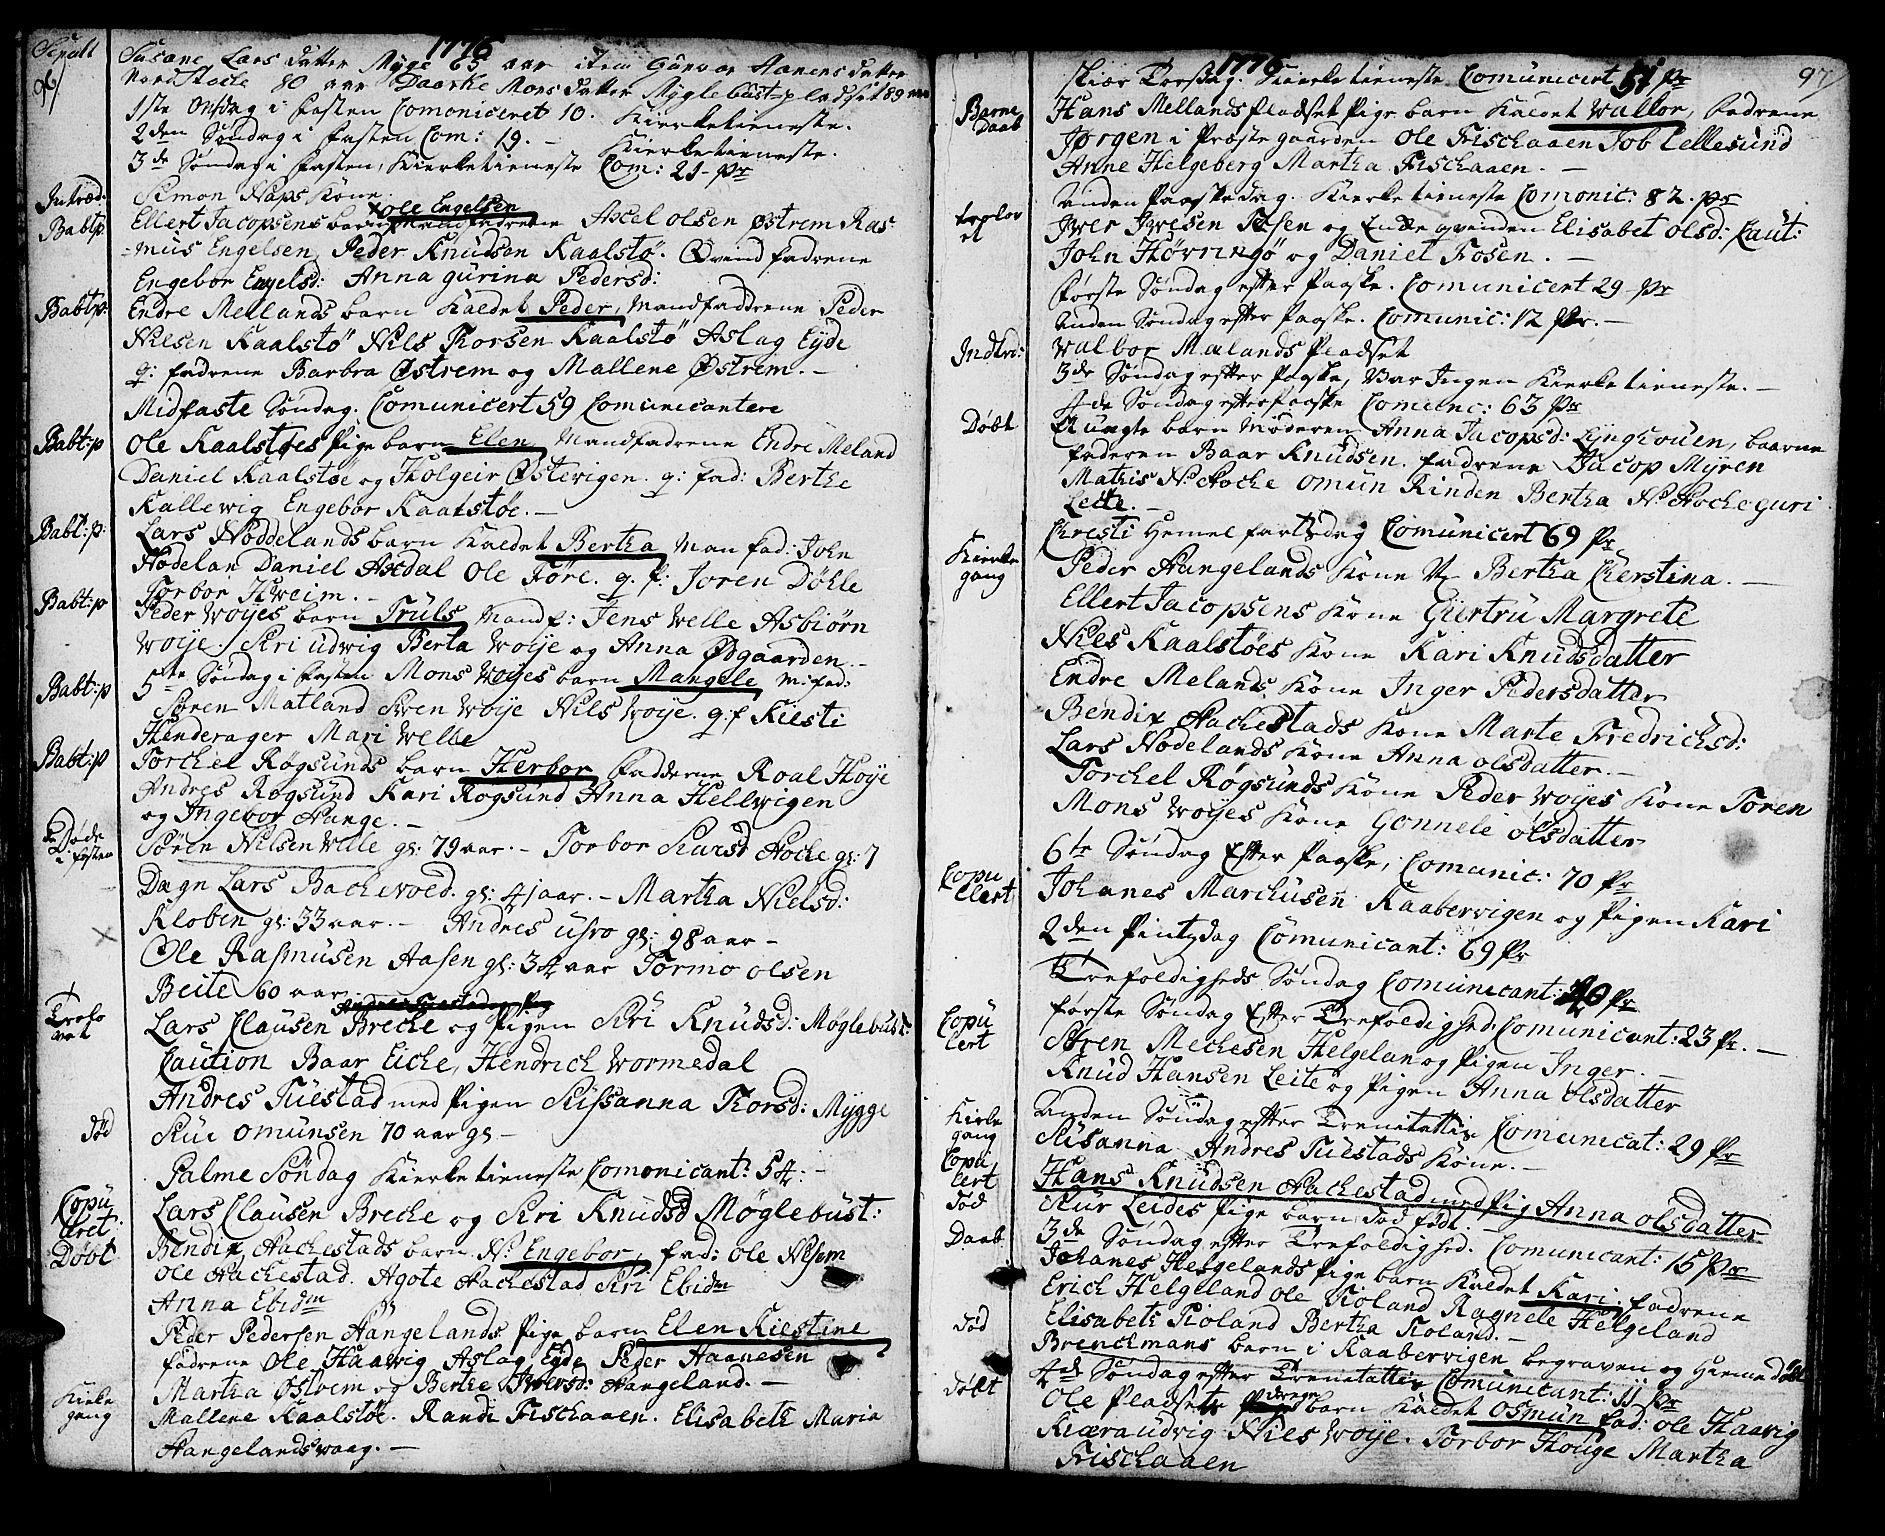 1776
Sepult Susane Lars datter Myge 65 aar item Gunvor Hanens datter
Nordstocke 80 aar Daarke Mons datter Myglebust pladset 89 aar
1ste Onsdag i fasten Comoniceret 10. Kierketieneste.
2den Søndag i fasten Com: 19. - Kierketieneste.
3de Søndag i fasten, Kierketieneste Com: 21 - Pr
Introd: Simon Naps Kone.
Babtp Ellert Jacopsens barn Ole Engelsen Mandfadrene Axcel olsen Østrem Ras-
-mus Engelsen, Peder Knudsen Kaalstø. Qvend fadrene
Engebor Engelsd: Anna gurina Pedersd:
Babtp: Endre Mellands barn Kaldet Peder, Mandfaddrene Peder
Nilsen Kaalstø Nils Thorsen Kaalstø Aslag Eyde
q: fadrene Barbra Østrem og Mallene Østrem. -
Midfaste Søndag. Comunicert 59 Comunicantere
Babt:p Ole Kaalstøes Pige barn Elen, Mandfadrene Endre Meland
Daniel Kaalstøe og Tholgeir Østevigen. q: fad: Berthe
Kallewig Engebor Kaalstøe. -
Babt:p. Lars Noddelands barn Kaldet Bertha Man fad: John
Nodelan Daniel Axdal Ole Føre. q. f: Joren Døhle
Torbor Hweim. -
Babt:p Peder Woyes barn Truls Mandf: Jens Welle Asbiørn
Woye. Siri udwig Berta Woye og Anna Øsgaarden. -
Babt:p 5te Søndag i fasten Mons Woyes barn Mangele m: fad:
Søren Matland Swen Woye Nils Woye. q: f Kiesti
Henderager Mari Welle
Babt:p Torchel Røgsunds barn Herbor faddrene Roal Høye
Andres Røgsund Kari Rogsund Anna Hellwigen
og Ingebor Hunge. -
Døde i fasten Søren Nilsen Welle gl: 79 aar. - Torbor Siursd Hocke gl: 7
Dagn Lars Bachevold. gl: 41 aar. - Martha Nielsd:
Kloben gl: 33 aar. - Andres usro gl: 98 aar -
Ole Rasmusen Aasen gl: 34 aar Tormo olsen
Beite 60 aar
Trolovet Lars Clausen Breche og Pigen Siri Knudsd: Møglebust:
Caution Baar Eiche, Hendrich Wormedal
Andres Tuestad med Pigen Sussanna Thorsd: Mygge
død Siur omunsen 70 aar gl -
Palme Søndag Kierketieneste Comonicant: 54. -
Copuleret Lars Clausen Breche og Siri Knudsd Møglebust:
Døbt Bendix Hachestads barn N. Engebor, fad: ole
Ole Hachestad. Agote Hachestad Siri Ebidm
Anna Ebidm
Peder Pedersen Hangelands Pige barn Elen Kiestine
fadrene Ole Haawig Aslag Eyde Peder Haanesen
Martha Ostrem og Berthe Iwersd: Hangeland. -
Kirke gang Mallene Kaalstøe. Randi Fischaaen. Elisabeth Maria
Hangelandsvaag. -
1776
97
Skiær Torsdag. Kierketieneste Comunicert 51 Pr
Barne Daab Hans Mellands Pladset Pige barn Kaldet Wallor, fadrene
Jørgen i Prøste gaarden Ole Frischaaen Tob Lellesund
Anne Helgeberg Martha Fischaaen. -
Anden Paaskedag. Kierketieneste Comonic: 82. pr
Iwer Iwersen Fosen og Enke qvinden Elisabet olsd: Caut:
John Høvringø og Daniel Fosen. -
Første Søndag efter Paaske. Comunicert 29 - Pr
Anden Søndag efter Paaske. Comunic: 12 Pr. -
Indtrd: Walbor Mælands Pladset
3de Søndag efter Paaske, War Ingen Kierketieneste. -
4de Søndag efter Paaske Comunc: 63 Pr
Døbt Et uegte barn Moderen Anna Jacopsd: Lynghouen, baarne
faderen Baar Knudsen. fadrene Jacop Myren
Mathis N. Hocke Omun Rinden Bertha N. Hocke guri
Leite. -
Chresti Hemel farts dag Comunicert 69 Pr
Kierke gang Peder Hangelands Kone N. Bertha Cherstina. -
Ellert Jacopsens Kone Giertru Margrete
Niels Kaalstøes Kone Kari Knudsdatter
Endre Melands Kone Inger Pedersdatter
Bendix Hachestads Kone Marte Fredrichsd:
Lars Nodelands Kone Anna olsdatter. -
Torchel Røgsunds Kone Peder Woyes Kone Toren
Mons Woyes Kone Gonnele olsdatter
6te Søndag Efter Paaske, Comunic: 70 Pr
Copulert Johanes Marchusen Kaabervigen og Pigen Kari
2den Pintzdag Comunicant: 69 Pr
Trefoldigheds Søndag Comunicant: 20 Pr
Første Søndag Efter Trefoldighed. Comunicant: 23 Pr. -
Copulert Søren Mechesen Helgelan og Pigen Inger. -
Knud Hansen Leite og Pigen Anna olsdatter
Anden Søndag efter Trenetattis Comunicat: 29 Pr
Kirke gang Susanna Andres Tuestads Kone. -
Copulert Hans Knudsen Hachestad med Pig Anna olsdatter
død Siur Leides Pige barn død født. -
3de Søndag efter Trefoldighed. Comunicant: 15 Pr
Daab Johanes Helgelands Pige barn Kaldet Kari. fadrene
Erich Helgeland Ole Kioland Ragnele Helgeland
Elisabeth Kioland Bertha Kioland. -
død Brenckmans barn i Kaabervigen begraven og Hieme døbt
4de Søndag efter Trenetattis Comunicant: 11 Pr
døbt Ole Pladsets drenge barn Kaldet Osmun fad: Ole Haavig
Kiæraudvig Niels Woye. Torbor Houge Martha
Frischaaen